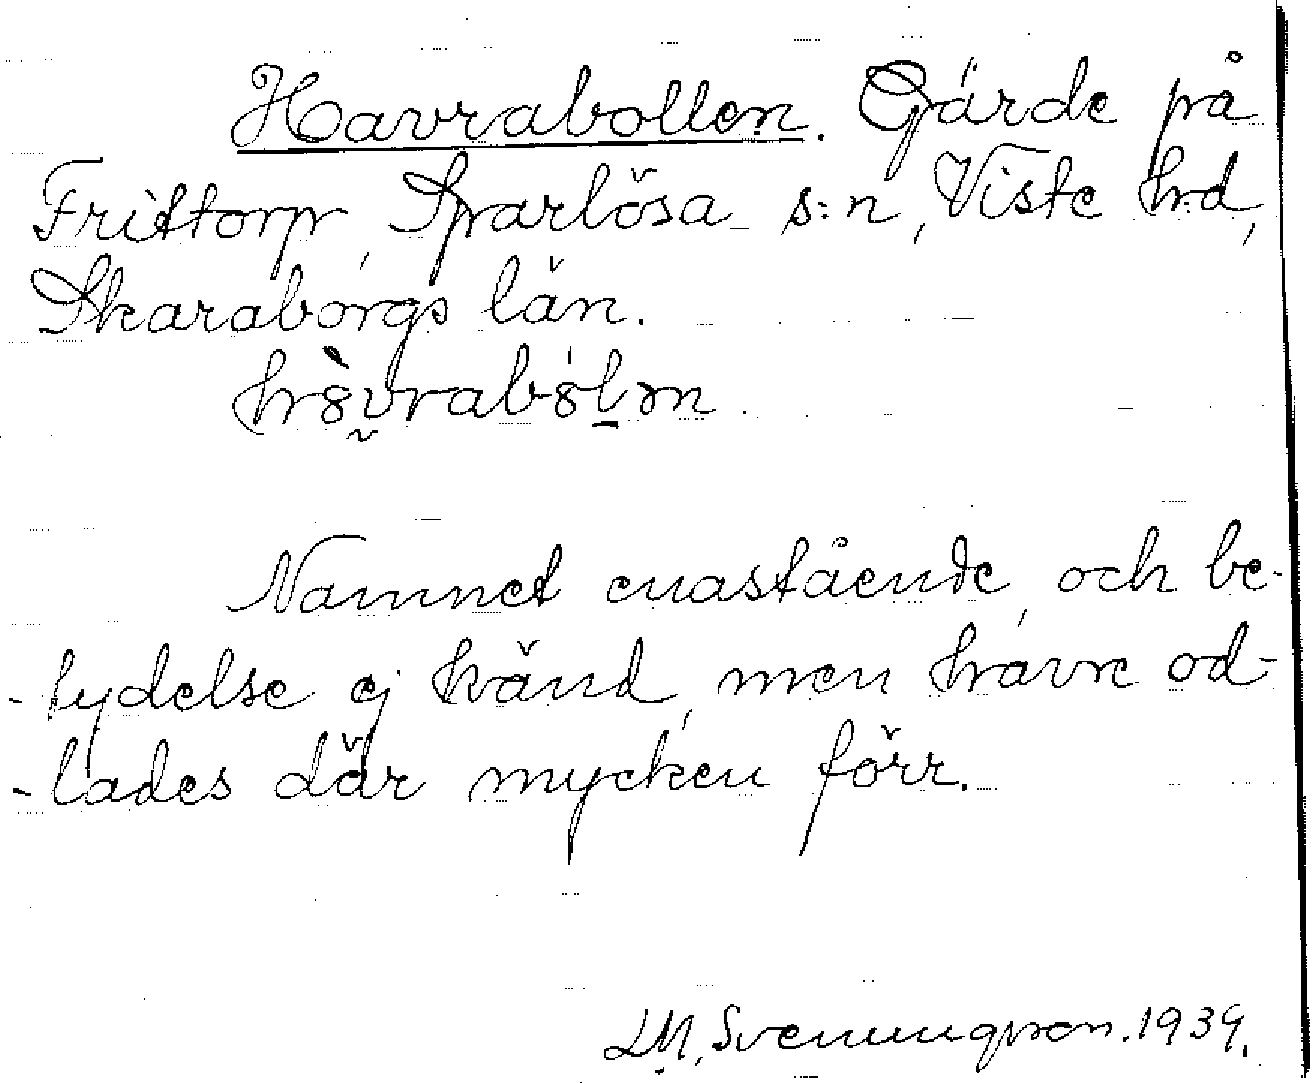 Havrabollen. Gärde på
Frittorp, Sparlösa s:n, Viste hd,
Skaraborgs län.
Namnet enastående, och be-
-tydelse ej känd, men havre od-
-lades där mycken förr.
LM. Svenungsson. 1939.